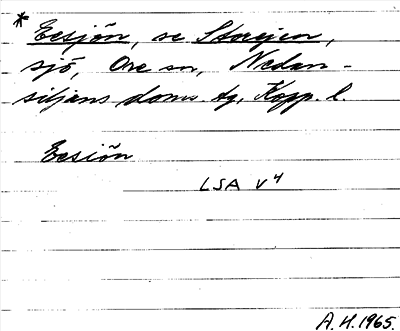 * Eesjön, se Storejen,
sjö, Ore sn, Nedan-
siljans doms. tg, Kopp. l.
Eesiön
LSA V4
A.H.1965.